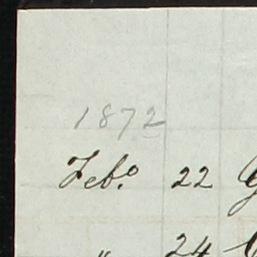 1872
Feb.º 22
" 24